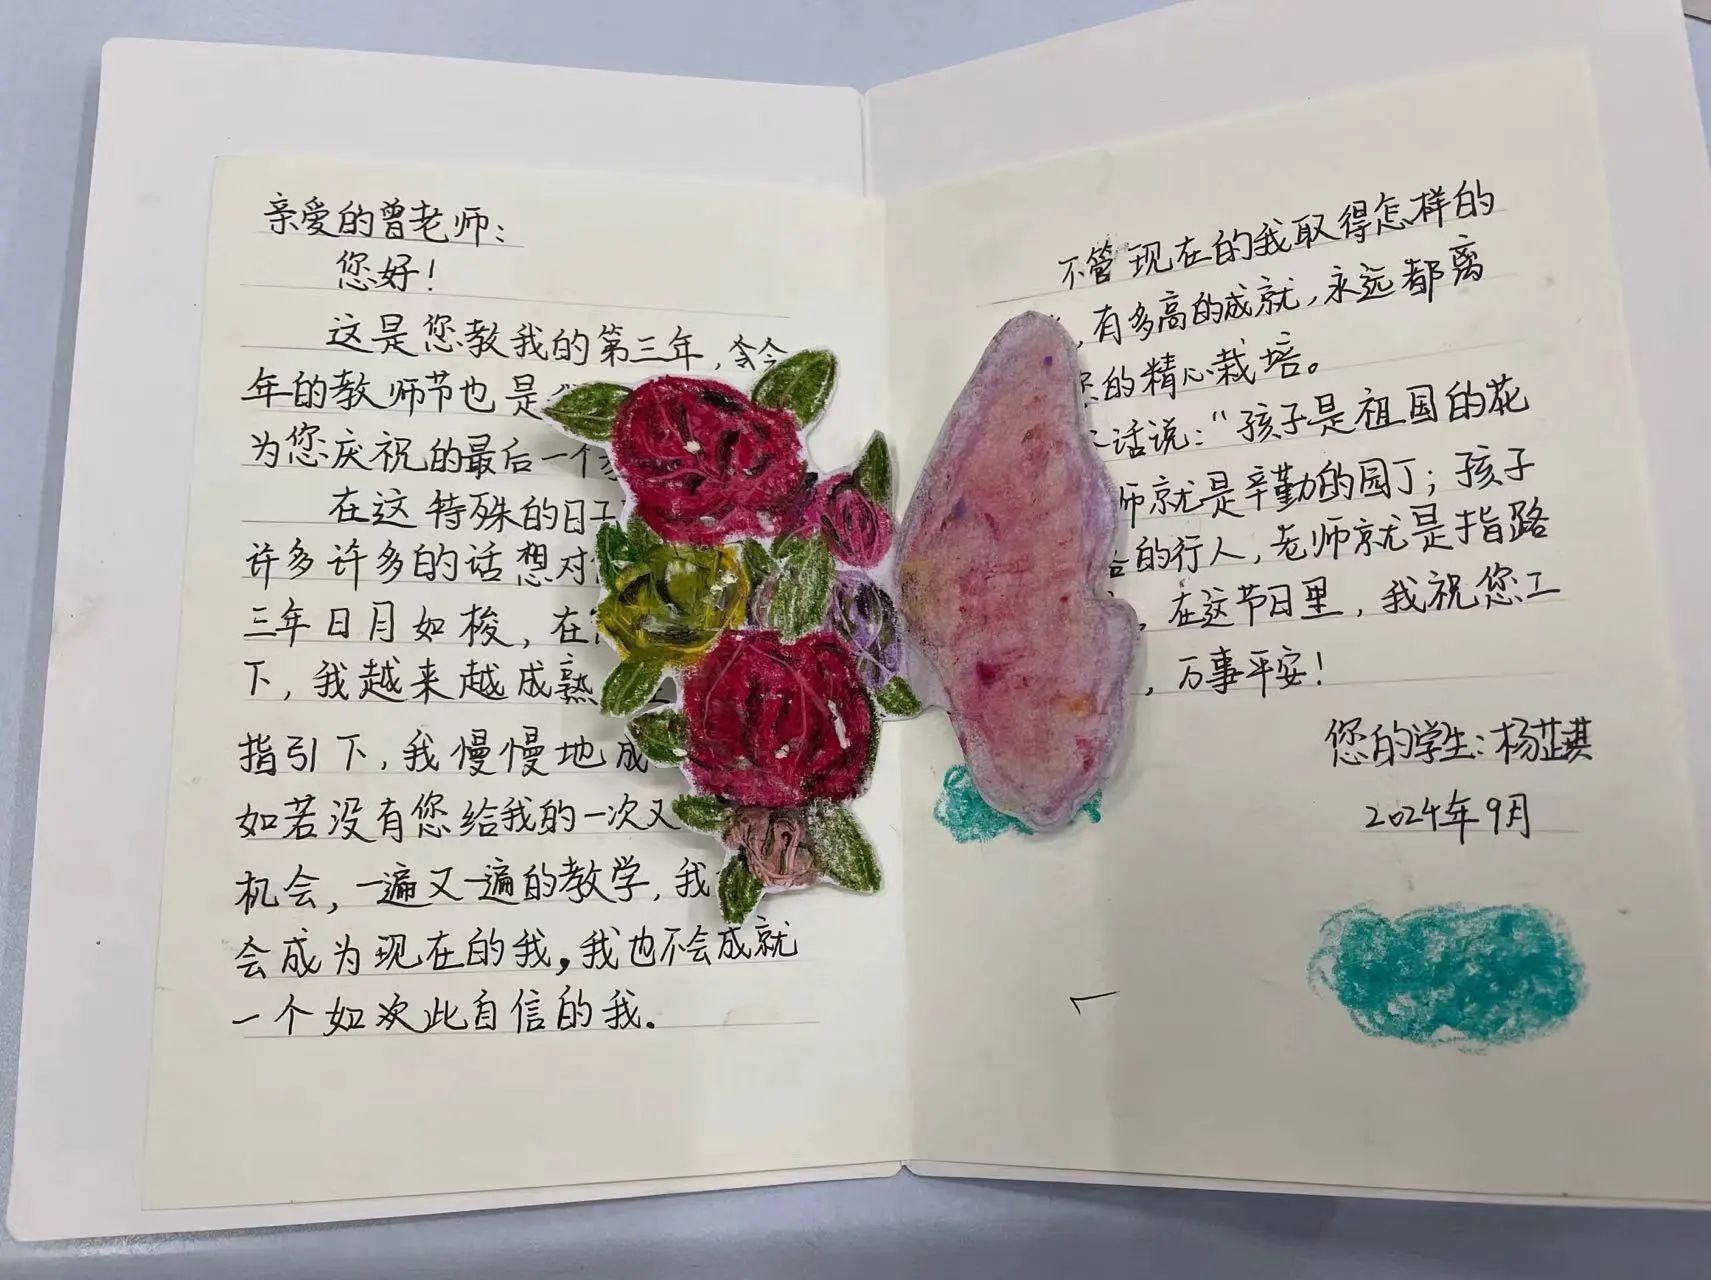 亲爱的曾老师：
您好！
这是您教我的第三年，今
年的教师节也是
为您庆祝的最后一个
在这特殊的日子
许多许多的话想对
三年日月如梭，在
下，我越来越成熟
指引下，我慢慢地成
如若没有您给我的一次又
机会，一遍又一遍的教学，我
会成为现在的我，我也不会成就
一个如次此自信的我．
不管现在的我取得怎样的
，有多高的成就，永远都离
的精心栽培。
话说：“孩子是祖国的花
师就是辛勤的园丁；孩子
的行人，老师就是指路
，在这节日里，我祝您工
，万事平安！
您的学生：杨芷琪
2024年9月